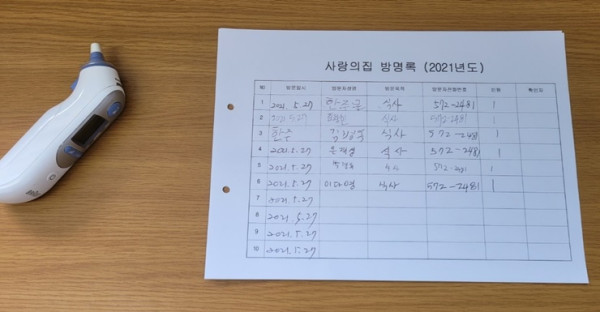 사랑의집 방명록 (2021년도)
NO 방문일시 방문자성명 방문목적 방문자전화번호 인원 확인자
1 2021. 5. 27 식사 572-2481 1
2 식사 572-2481 1
3 한주 식사 572-2481 1
4 2021. 5. 27 식사 572-2481 1
5 2021. 5. 27 572-2481 1
6 2021. 5. 27 식사 572-2481 1
7 2021. 5. 27
8 2021. 5. 27
9 2021. 5. 27
10 2021. 5. 27
BRAUN